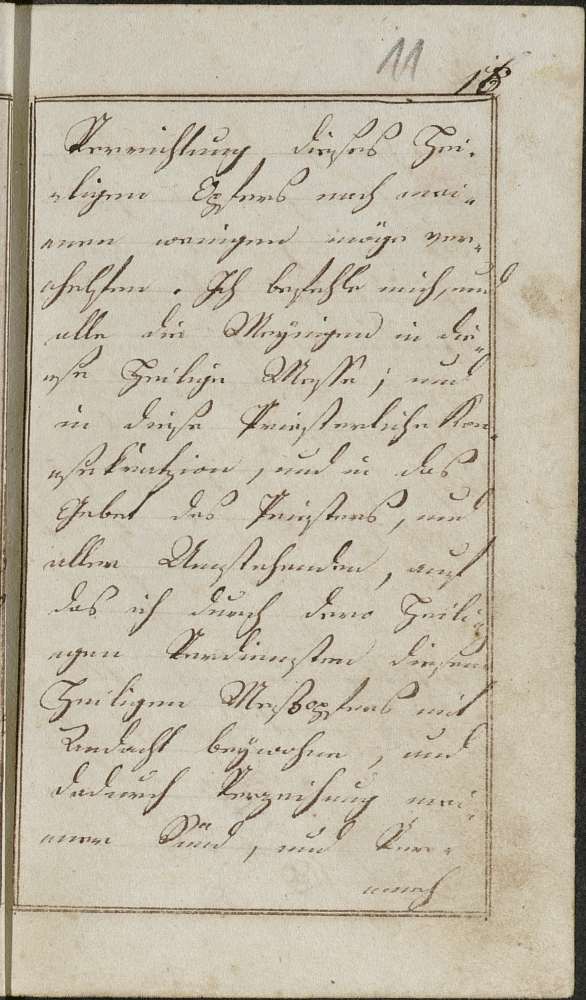 11
18
Verrichtung dieses Hei-
-ligen Opfers nach mei-
-nen weinigen möge ver-
-helfen. Ich befehle mich, und
alle die Meynigen in die-
-se Heilige Messe; und
in diese Priesterliche Kon-
-sekrazion, und in das
Gebet des Priesters, und
aller Umstehenden, auf
das ich durch dero Heili-
-gen Verdiensten diesen
Heiligen Meßopfers mit
Andacht beywohne, und
dadurch Verzeihung mei-
-ner Sünd, und